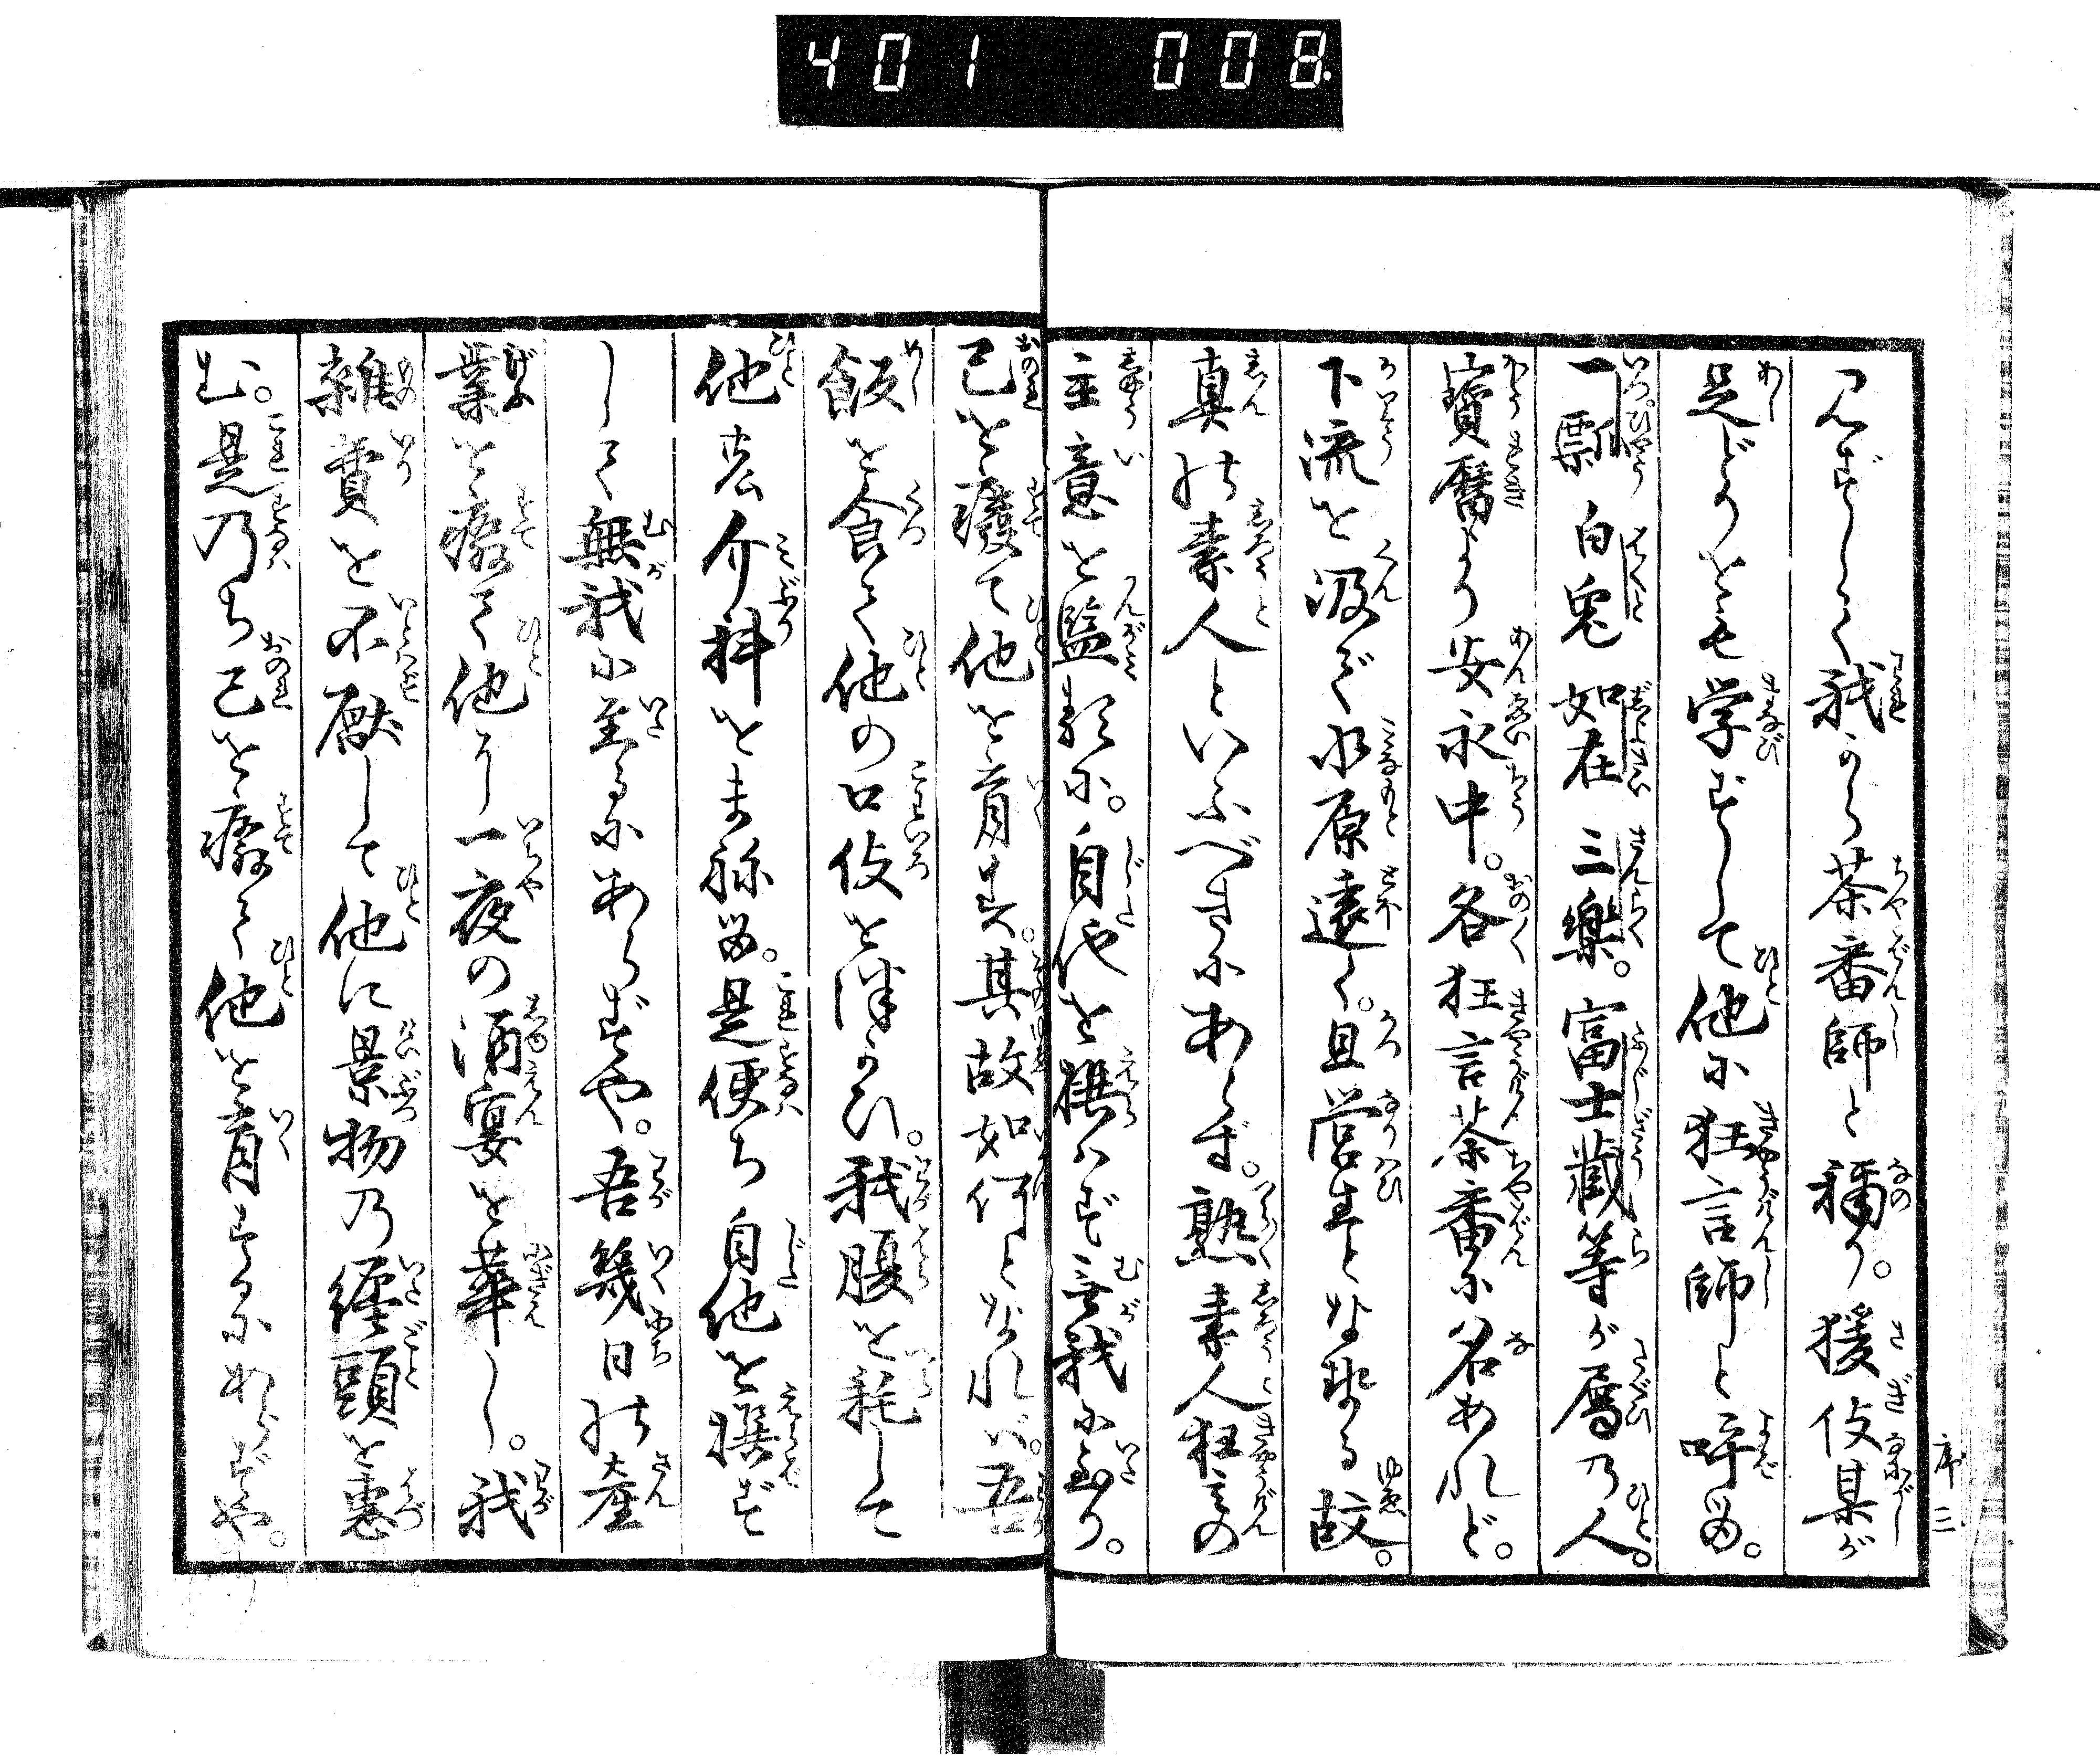 401 008
み∴ずして我から茶番師と称り。猨伎某が
足どりをも学ずして他に狂言師と呼る。
一瓢白兎如在三樂。富士藏等が属の人。
寳暦より安永中。各狂言茶番に名あれど。
下流を汲で水原遠く。且営業となせる故。
真の素人といふべきにあらず。熟素人狂言の
主意を監るに。自他を撰はず無我に至り。
己を廢て他を育す。其故如何となれば。吾
飯を食て他の口伎を 我腹を耗して
他 介抖をまねる。是便ち自他を撰ず
して無我に至るにあらずや。吾幾日の産
業を癈て他に一夜の酒宴を華し。我
雑費を不厭して他に景物乃纏頭を恵
む。是乃ち己を癈て他を育するにあらずや。
序 三